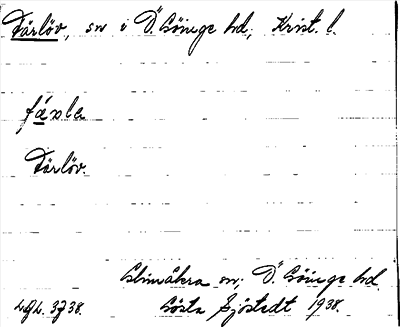 Färlöv, sn i Ö. Göinge hd, Krist. l.
färla
Färlöv.
Glimåkra sn, Ö. Göinge hd
Gösta Sjöstedt 1938.